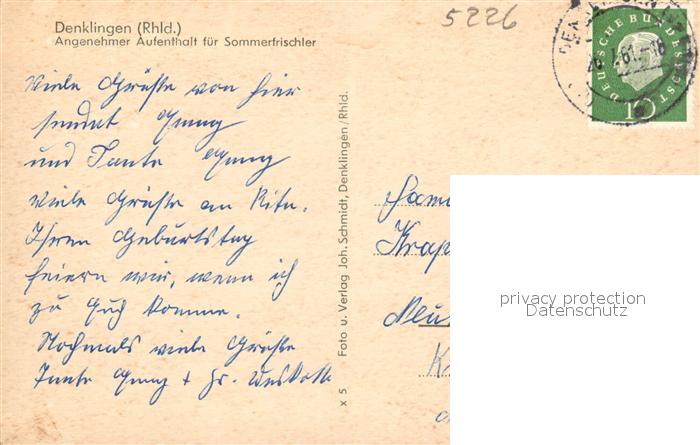 5226
Denklingen (Rhld.)
Angenehmer Aufenthalt für Sommerfrischler
DEUTSCHE BUNDESPOST
10
Viele Grüße von hier
sendet
und Tante
Viele Grüße an Rita.
Ihren Geburtstag
feiern wir, wenn ich
zu Euch komme.
Nochmals viele Grüße
Tante + Fr.
Foto u. Verlag Joh. Schmidt, Denklingen/Rhld.
x 5
Fam
Krap
Neu
K
privacy protection
Datenschutz